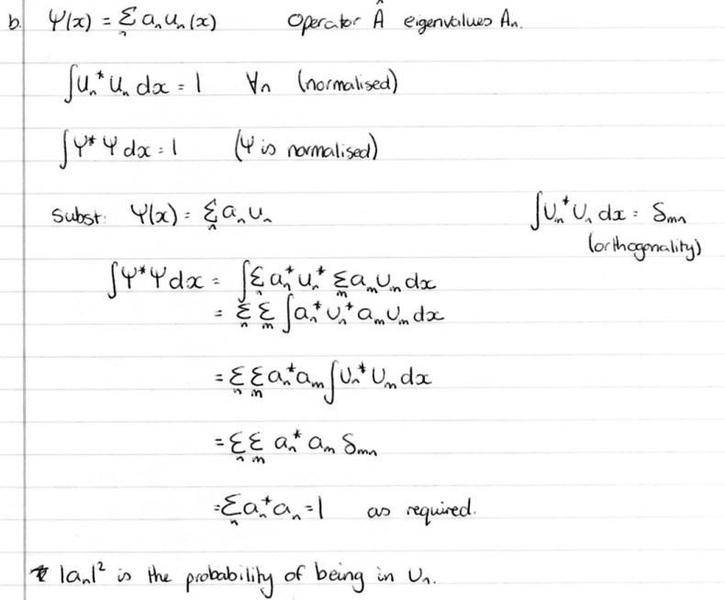 b. Ψ(x) = Σₙ aₙ uₙ(x) Operator Â eigenvalues Aₙ.
∫uₙ* uₙ dx = 1 ∀n (normalised)
∫Ψ* Ψ dx = 1 (Ψ is normalised)
Subst: Ψ(x) = Σₙ aₙ uₙ ∫uₘ* uₙ dx = δₘₙ
(orthogonality)
∫Ψ*Ψ dx = ∫Σₙ aₙ* uₙ* Σₘ aₘ uₘ dx
= Σₙ Σₘ ∫aₙ* uₙ* aₘ uₘ dx
= Σₙ Σₘ aₙ* aₘ ∫uₙ* uₘ dx
= Σₙ Σₘ aₙ* aₘ δₘₙ
= Σₙ aₙ* aₙ = 1 as required.
|aₙ|² is the probability of being in uₙ.